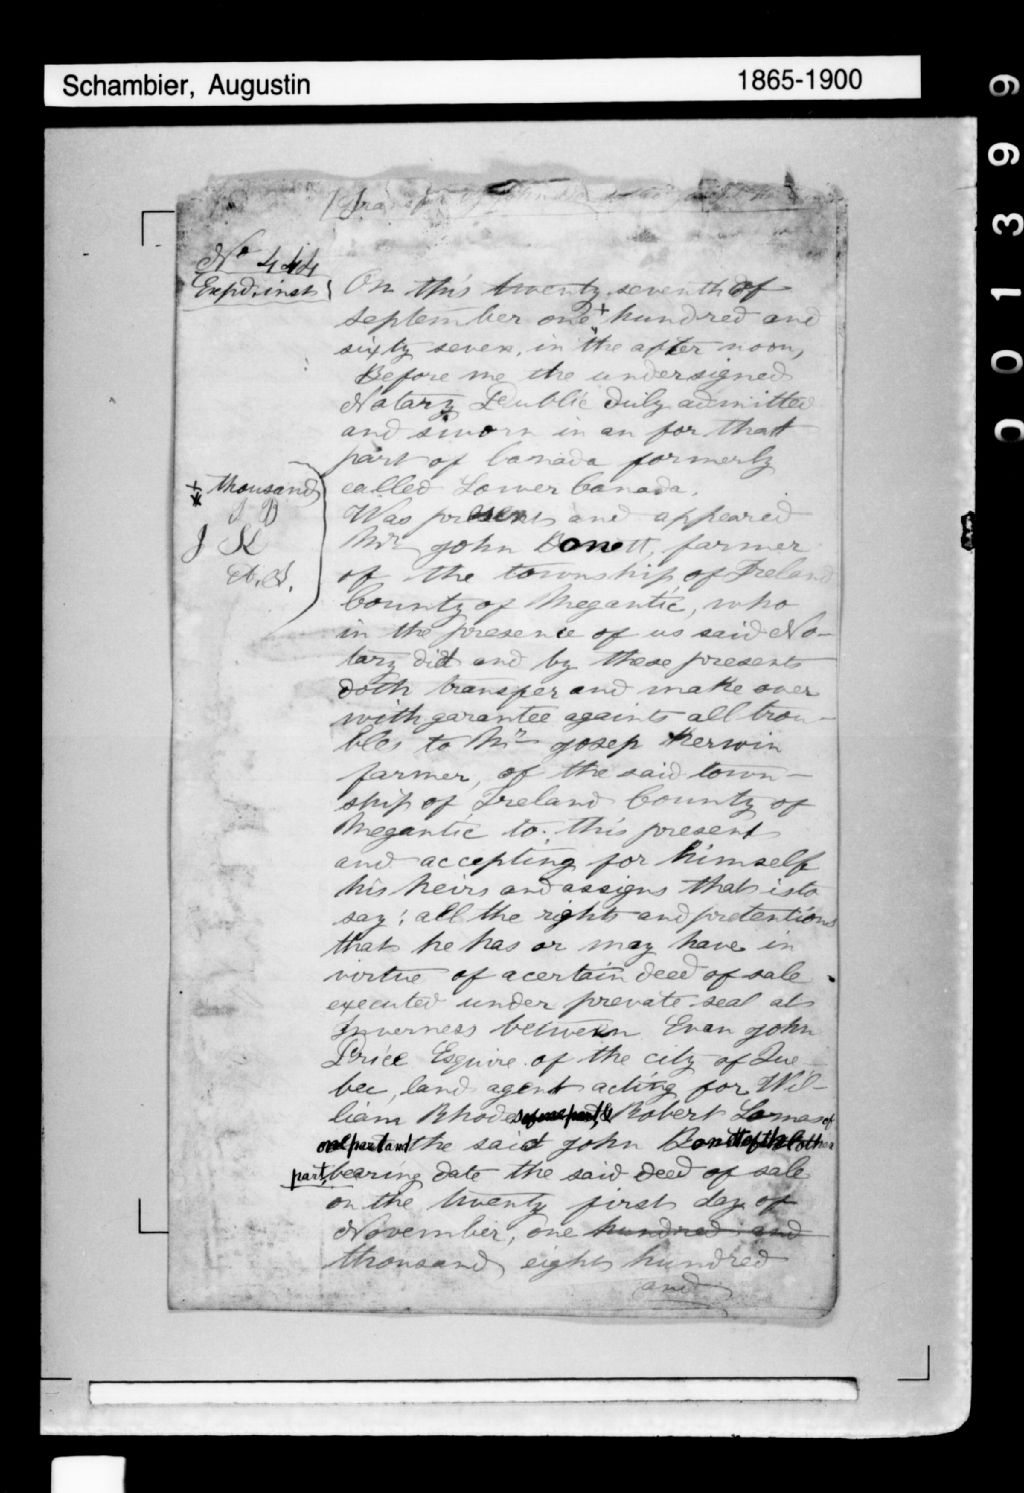 Schambier, Augustin 1865-1900
001399
Transfer by John
No 444
Expd. inst
On this twenty seventh of
september one + hundred and
sixty seven, in the after noon,
Before me the undersigned
Notary Public duly admitted
and sworn in an for that
part of Canada formerly
+ thousand
called Lower Canada.
J B
Was present and appeared
J K
Mr John Bonett, farmer
of the township of Ireland
County of Megantic, who
in the presence of us said No-
tary did and by these presents
doth transfer and make over
with garantee againts all trou-
bles to Mr Josep Kerwin
farmer, of the said town-
ship of Ireland County of
Megantic to this present
and accepting for himself
his heirs and assigns that is to
say; all the rights and pretentions
that he has or may have in
virtue of a certain deed of sale
executed under prevate seal at
Inverness between Evan John
Price Esquire of the city of Que
bec, land agent acting for Wil-
liam Rhodes of one part, & Robert Lomas of
one part and the said John Bonett of the other
part, bearing date the said deed of sale
on the twenty first day of
November, one hundred and
thousand eight hundred
and